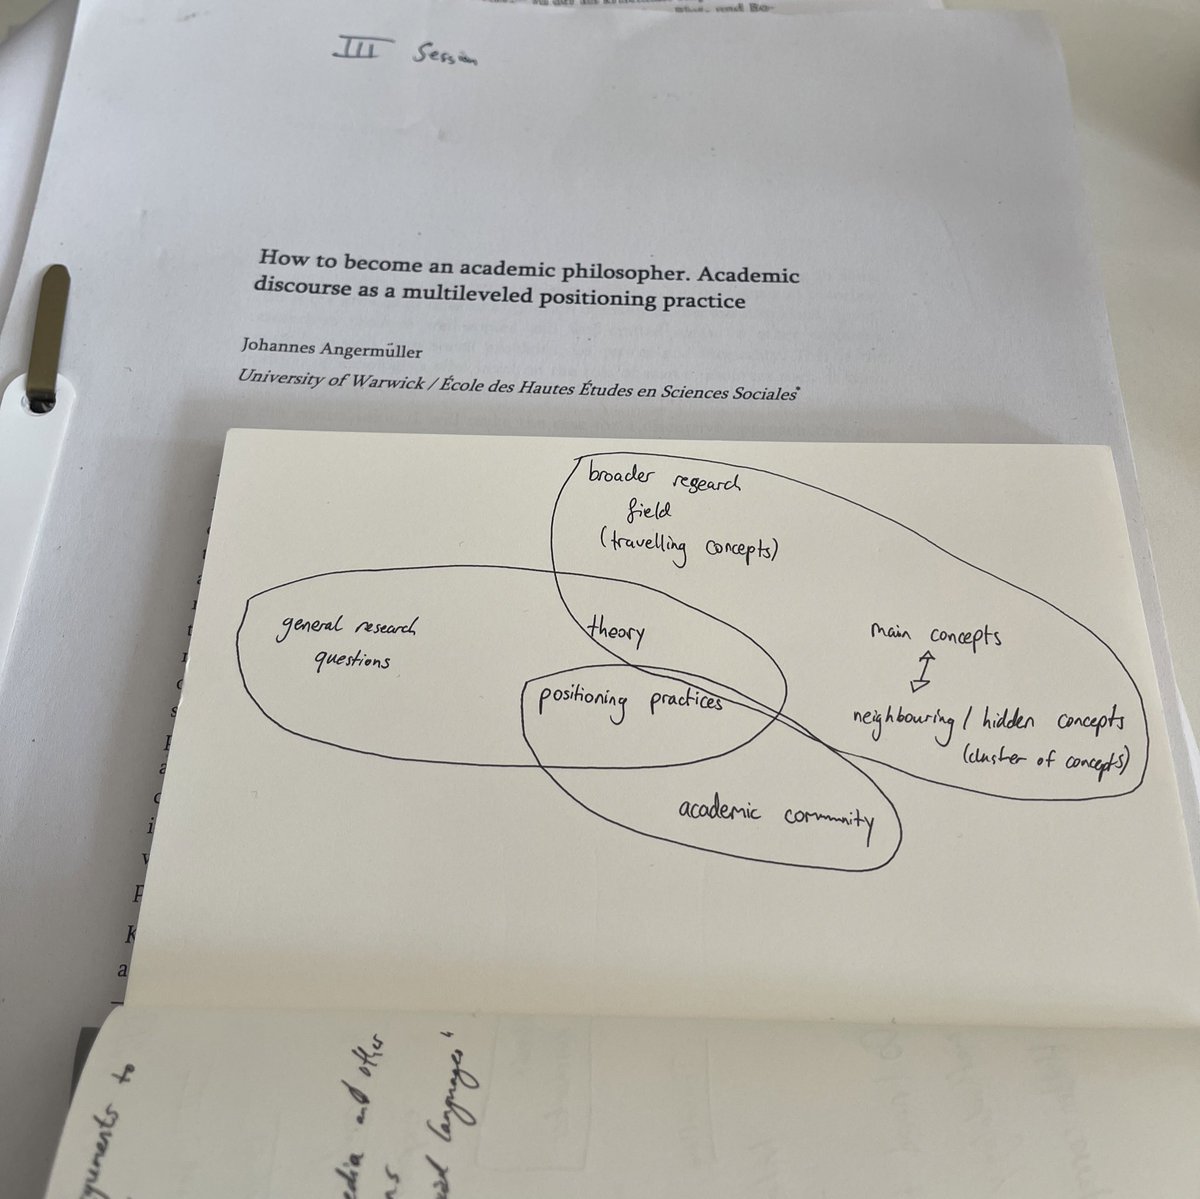 vend Bo-
III Session
How to become an academic philosopher. Academic
discourse as a multileveled positioning practice
Johannes Angermüller
University of Warwick / École des Hautes Études en Sciences Sociales*
broader research
field
(travelling concepts)
general research
questions
theory
main concepts
positioning practices
neighbouring / hidden concepts
(cluster of concepts)
academic community
to
and other
languages"